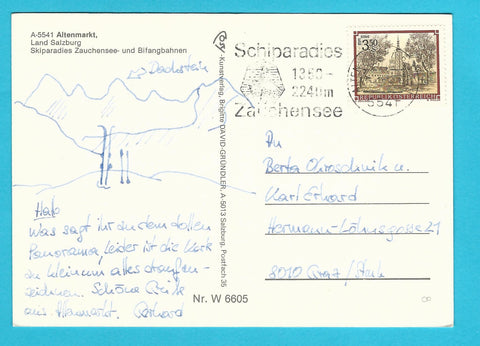 A-5541 Altenmarkt,
Land Salzburg
Skiparadies Zauchensee- und Bifangbahnen
Dachstein
Hallo
Was sagt ihr zu dem tollen
Panorama, leider ist die Karte
zu klein um alles draufzu-
zeichnen. Schöne Grüße
aus Altenmarkt. Gerhard
Kunstverlag, Brigitte DAVID-GRÜNDLER, A-5013 Salzburg, Postfach 35
Nr. W 6605
Schiparadies
1350-
2240m
Zauchensee
5541
3.50
REPUBLIK ÖSTERREICH
An
Berta u.
Karl Erhard
Hermann-Lönsgasse 21
8010 Graz / Stmk